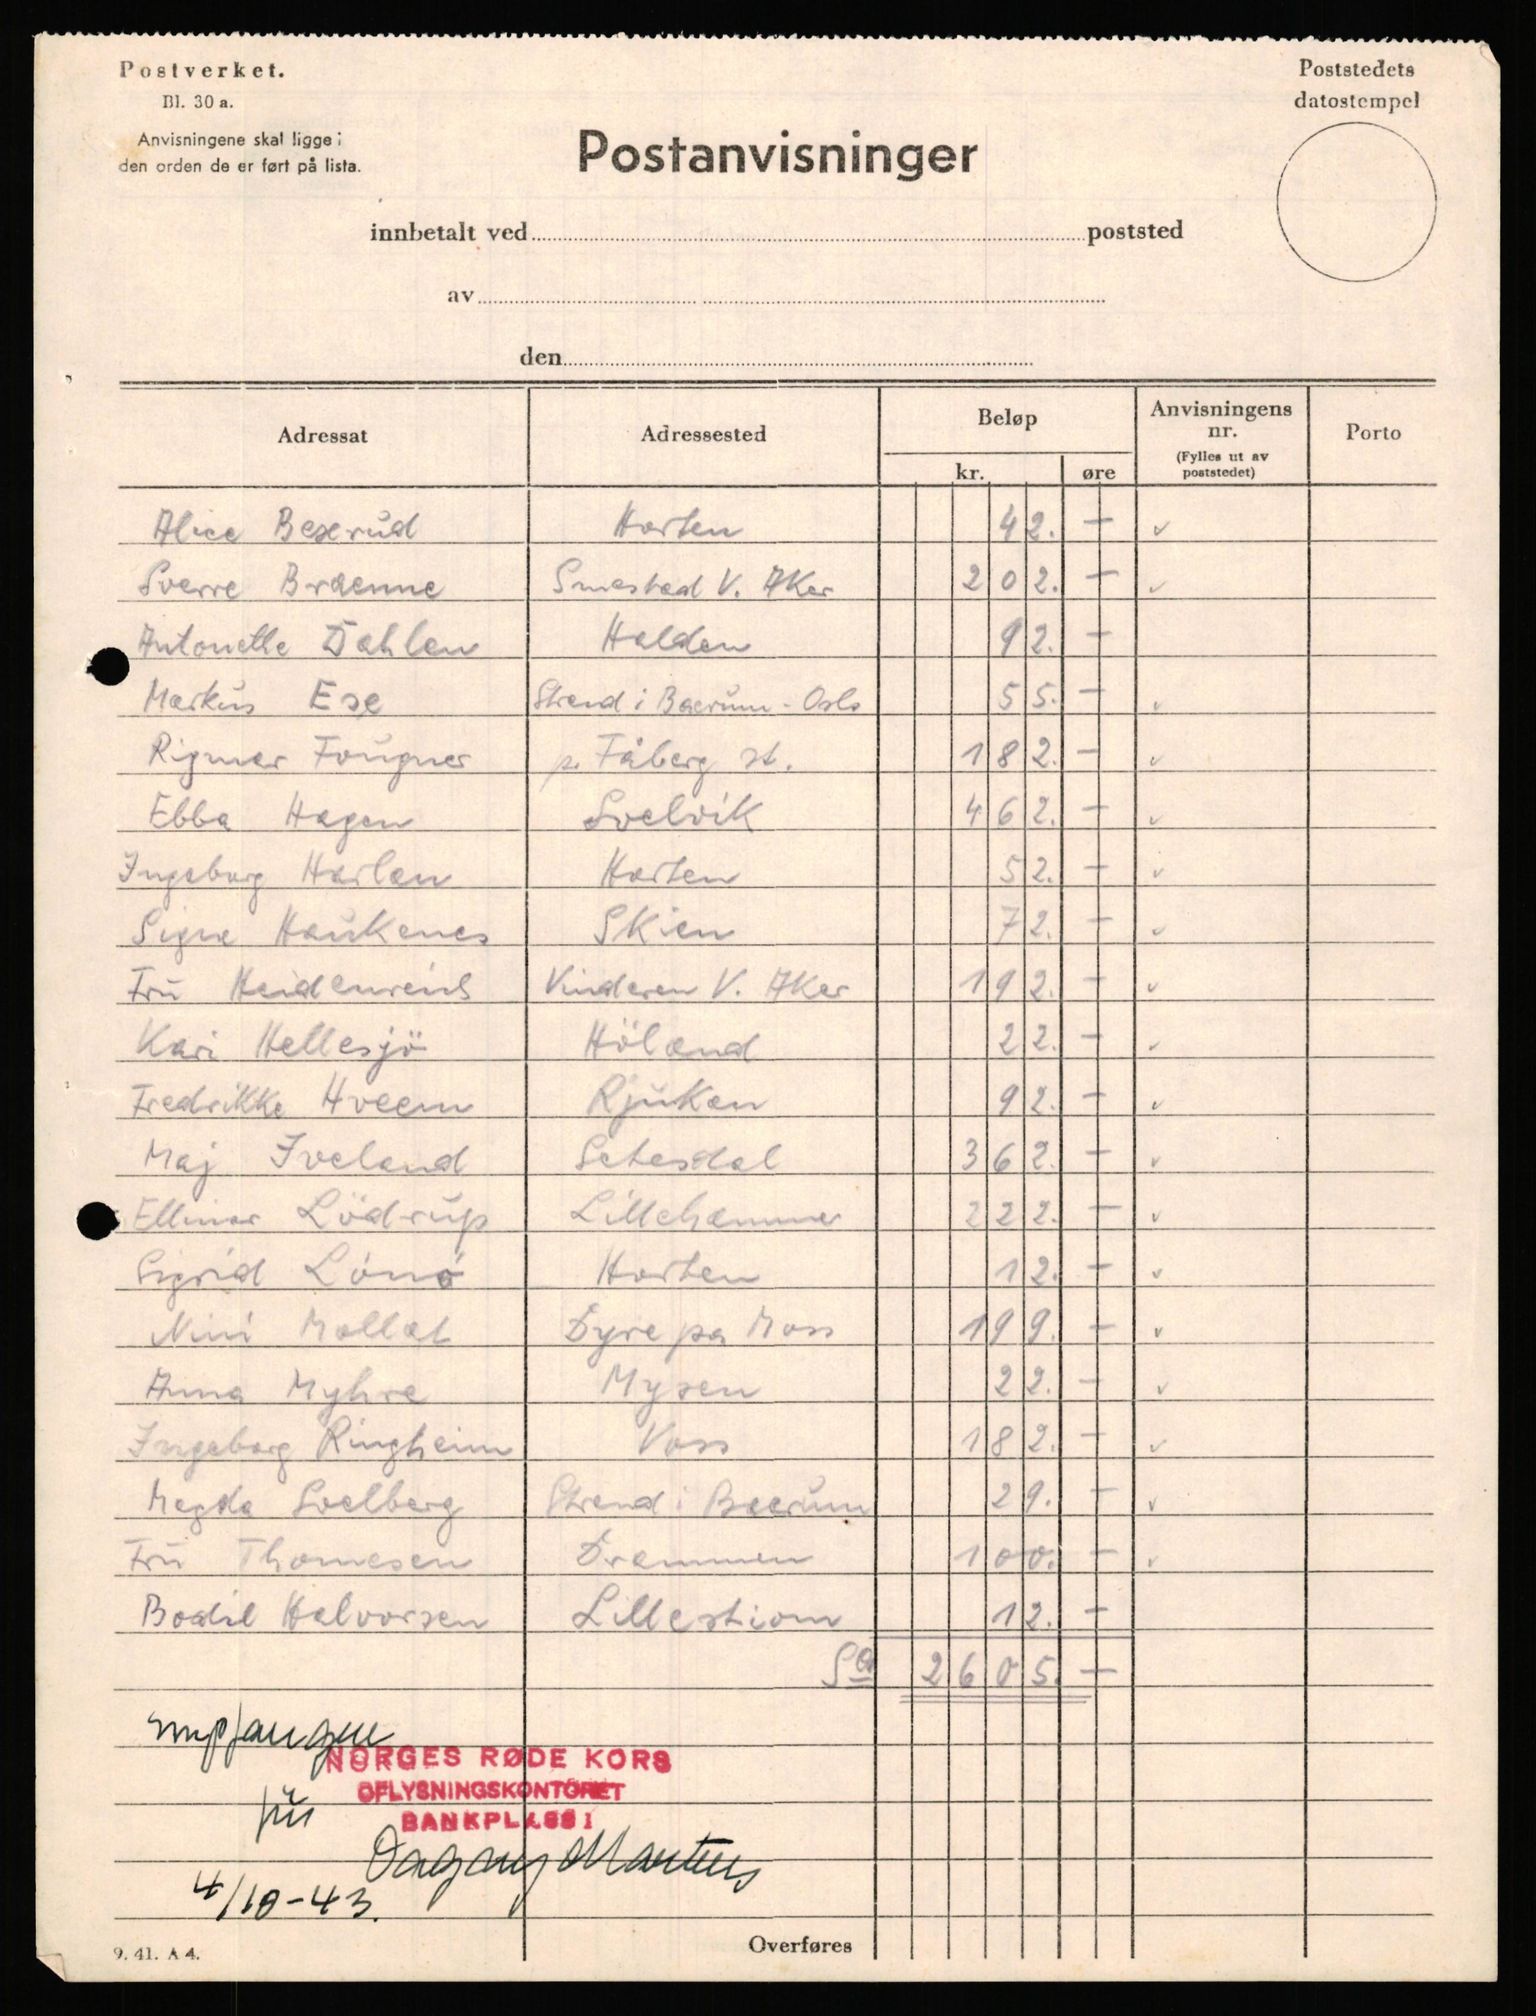 Postverket.
Bl. 30 a.
Anvisningene skal ligge i
den orden de er ført på lista.
Poststedets
datostempel
Postanvisninger
innbetalt ved poststed
av
den
Adressat Adressested Beløp Anvisningens nr. Porto
kr. øre (Fylles ut av poststedet)
Alice Bexrud Horten 42. —
Sverre Braenne Smestad V. Aker 202. —
Antonette Dahlen Halden 92. —
Markus Ese Strand i Baerum - Oslo 55. —
Rigmor Fougner p. Fåberg st. 182. —
Ebba Hagen Svelvik 462. —
Ingeborg Harlan Horten 52. —
Signe Haukenes Skien 72. —
Fru Heidenreich Vinderen V. Aker 192. —
Kari Hellesjö Höland 22. —
Fredrikke Hveem Rjukan 92. —
Maj Iveland Setesdal 362. —
Ellinor Lödrup Lillehammer 222. —
Sigrid Lönö Horten 12. —
Nini Mollat Dyre pa Moss 199. —
Anna Myhre Mysen 22. —
Ingeborg Ringheim Voss 182. —
Magda Solberg Strand i Baerum 29. —
Fru Thomesen Drammen 100. —
Bodil Halvorsen Lillestrom 12. —
Sa 2605. —
empfangen
NORGES RØDE KORS
OPLYSNINGSKONTORET
für
BANKPLASS 1
Dagny Martens
4/10-43.
9. 41. A 4.
Overføres